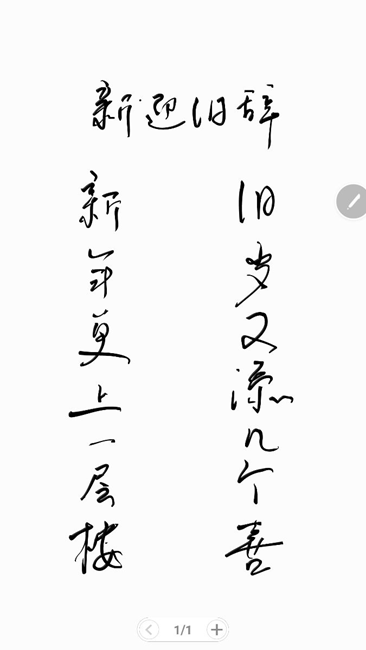 新迎旧辞
旧岁又添几个喜
新年更上一层楼
1/1